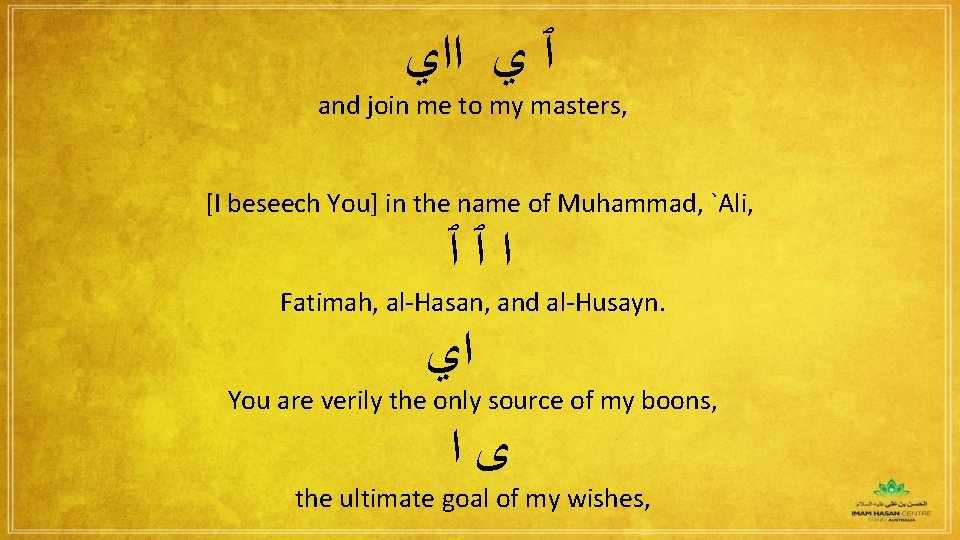 ٱ ي ااي
and join me to my masters,
[I beseech You] in the name of Muhammad, `Ali,
ا ٱ ٱ
Fatimah, al-Hasan, and al-Husayn.
اي
You are verily the only source of my boons,
ى ا
the ultimate goal of my wishes,
الحسن بن علي عليه السلام
IMAM HASAN CENTRE
SYDNEY AUSTRALIA